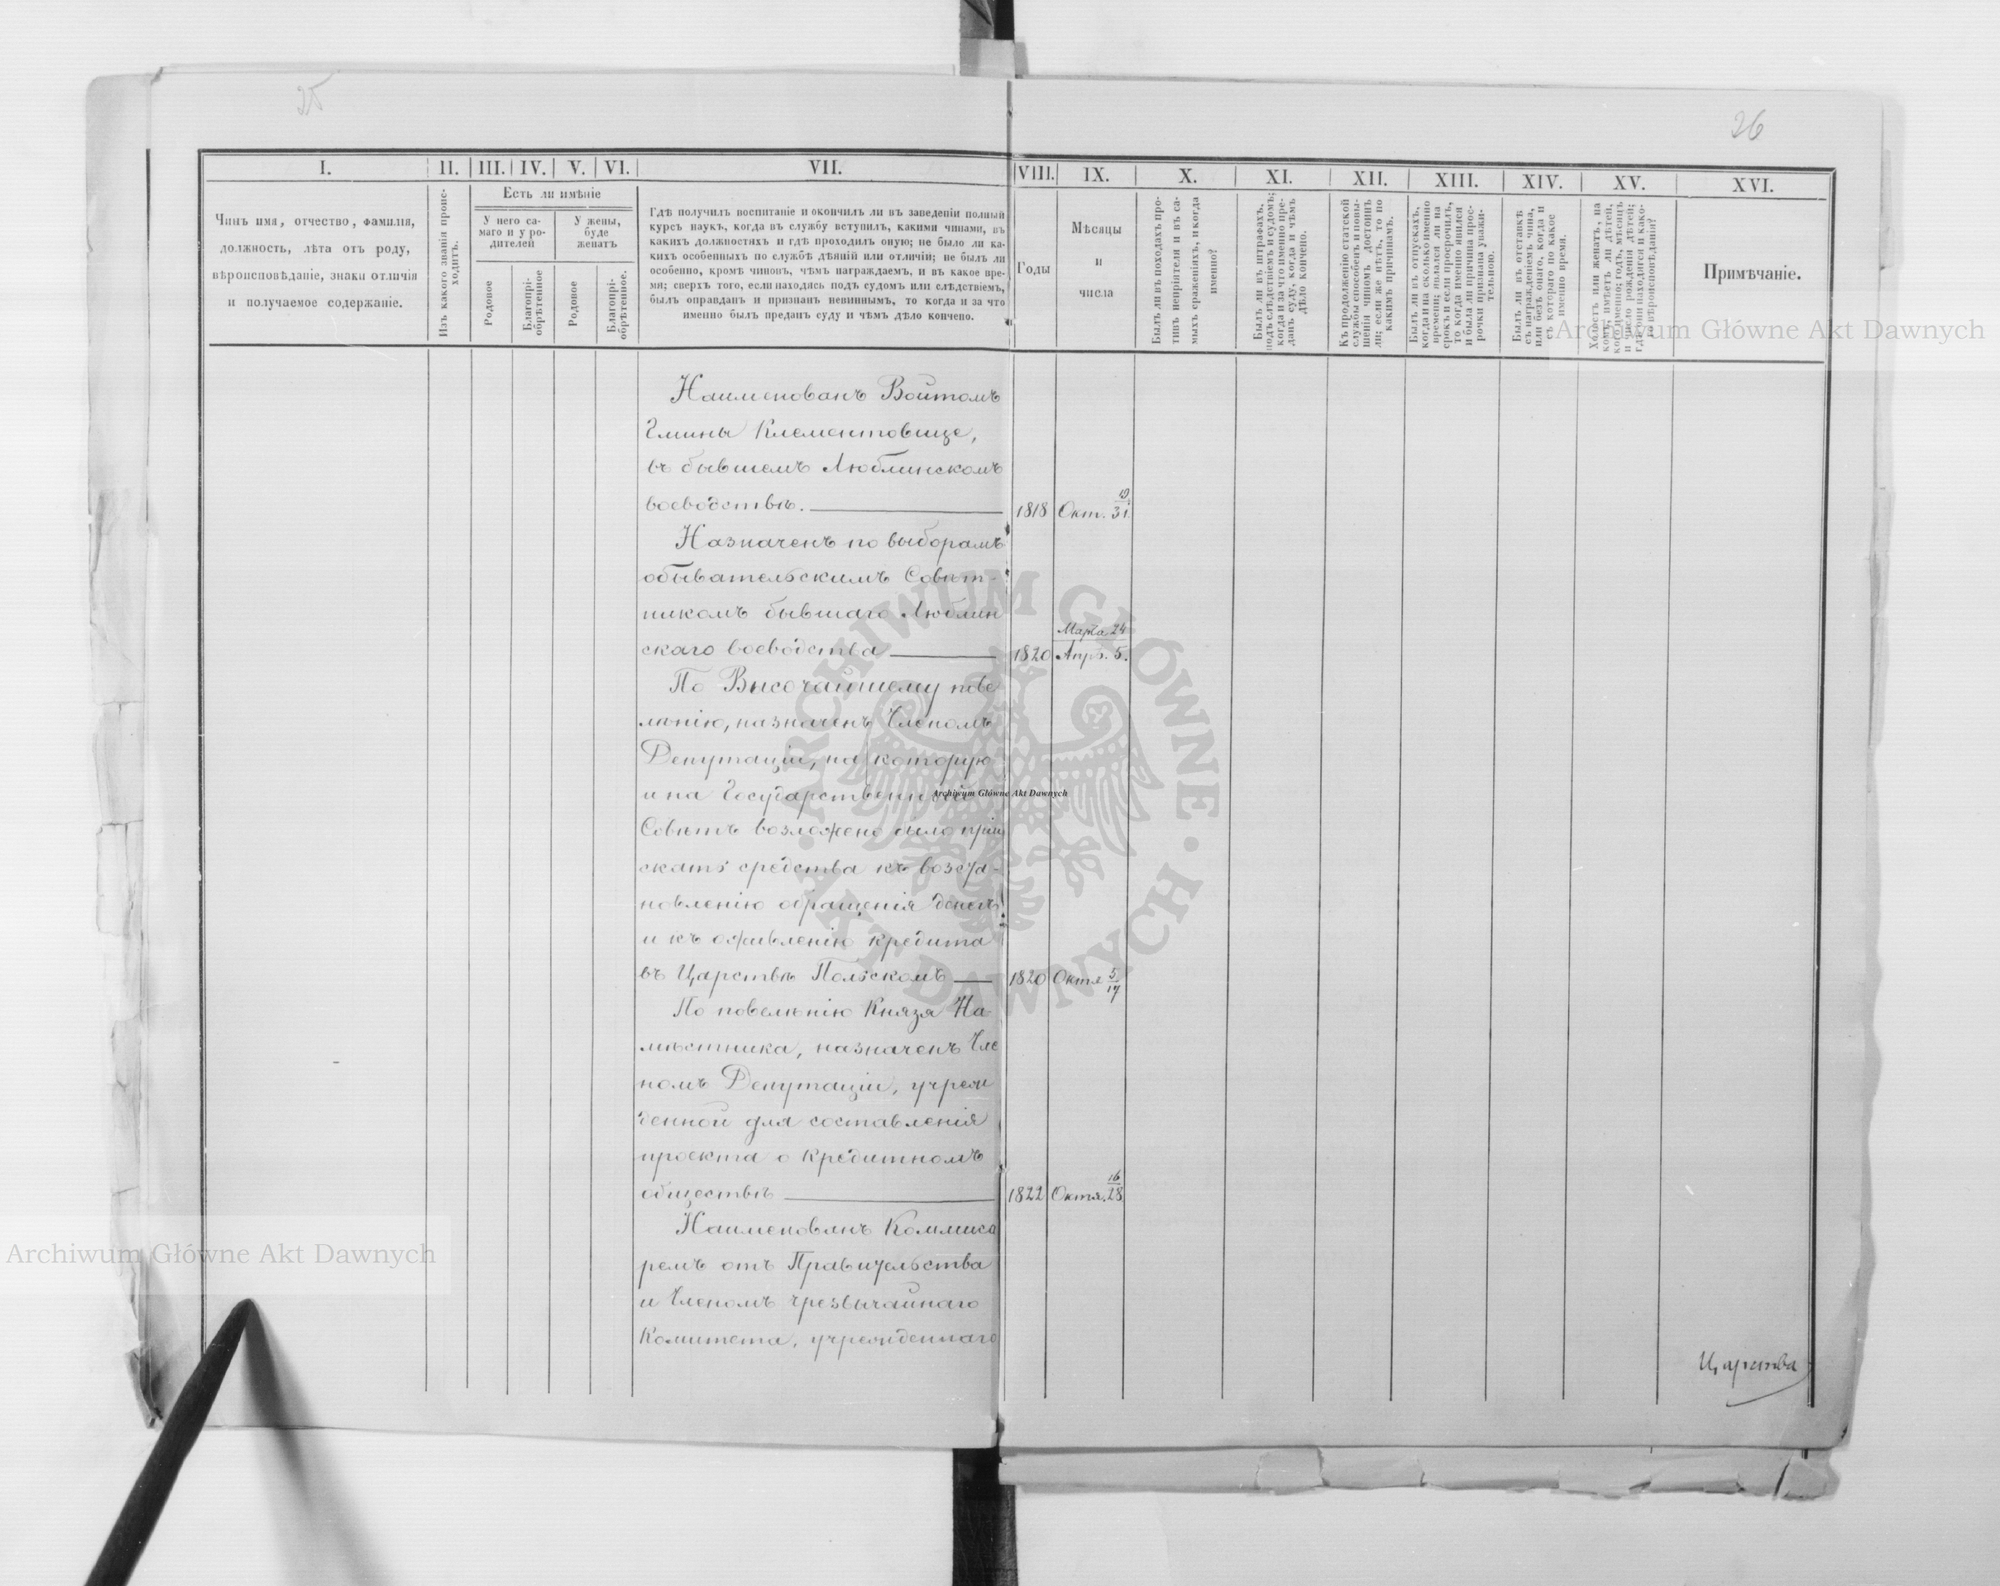 25
26
I.
II.
III.
IV.
V.
VI.
VII.
VIII.
IX.
X.
XI.
XII.
XIII.
XIV.
XV.
XVI.
Чинъ имя, отчество, фамилія,
должность, лѣта отъ роду,
вѣроисповѣданіе, знаки отличія
и получаемое содержаніе.
Изъ какого званія проис-
ходитъ.
Есть ли имѣніе
У него са-
маго и у ро-
дителей
У жены,
буде
женатъ
Родовое
Благопрі-
обрѣтенное
Родовое
Благопрі-
обрѣтенное.
Гдѣ получилъ воспитаніе и окончилъ ли въ заведеніи полный
курсъ наукъ, когда въ службу вступилъ, какими чинами, въ
какихъ должностяхъ и гдѣ проходилъ оную; не было ли ка-
кихъ особенныхъ по службѣ дѣяній или отличій; не былъ ли
особенно, кромѣ чиновъ, чѣмъ награждаемъ, и въ какое вре-
мя; сверхъ того, если находясь подъ судомъ или слѣдствіемъ,
былъ оправданъ и признанъ невиннымъ, то когда и за что
именно былъ преданъ суду и чѣмъ дѣло кончено.
Годы
Мѣсяцы
и
числа
Былъ ли въ походахъ про-
тивъ непріятеля и въ са-
мыхъ сраженіяхъ, и когда
именно?
Былъ ли въ штрафахъ,
подъ слѣдствіемъ и судомъ;
когда и за что именно пре-
данъ суду, когда и чѣмъ
дѣло кончено.
Къ продолженію статской
службы способенъ и повы-
шенія чиномъ достоинъ
ли; если же нѣтъ, то по
какимъ причинамъ.
Былъ ли въ отпускахъ,
когда и на сколько именно
времени; являлся ли на
срокъ и если просрочилъ,
то когда именно явился
и была ли причина прос-
рочки признана уважи-
тельною.
Былъ ли въ отставкѣ
съ награжденіемъ чина,
или безъ онаго, когда и
съ котораго по какое
именно время.
Холостъ или женатъ, на
комъ; имѣетъ ли дѣтей,
кого именно; годъ, мѣсяцъ
и число рожденія дѣтей;
гдѣ они находятся и како-
го вѣроисповѣданія?
Примѣчаніе.
Наименованъ Войтомъ
Гмины Клементовице,
въ бывшемъ Люблинскомъ
воеводствѣ. 1818 Окт. 19/31.
Назначенъ по выборамъ
обывательскимъ Совѣт-
никомъ бывшаго Люблин
скаго воеводства 1820 Марта 24/Апрѣ. 5.
По Высочайшему пове
лѣнію, назначенъ Членомъ
Депутаціи, на которую
и на Государственный
Совѣтъ возложено было прiи
скать средства къ возста-
новленію обращенія денегъ
и къ оживленію кредита
въ Царствѣ Польскомъ 1820 Октя 5/17
По повелѣнію Князя На
мѣстника, назначенъ Чле
номъ Депутаціи, учреж
денной для составленія
проекта о Кредитномъ
обществѣ 1822 Октя. 16/28
Наименованъ Коммиса
ремъ отъ Правительства
и Членомъ чрезвычайнаго
Комитета, учрежденнаго
Царства
Archiwum Główne Akt Dawnych
Archiwum Główne Akt Dawnych
Archiwum Główne Akt Dawnych
ARCHIWUM GŁÓWNE · AKT DAWNYCH ·